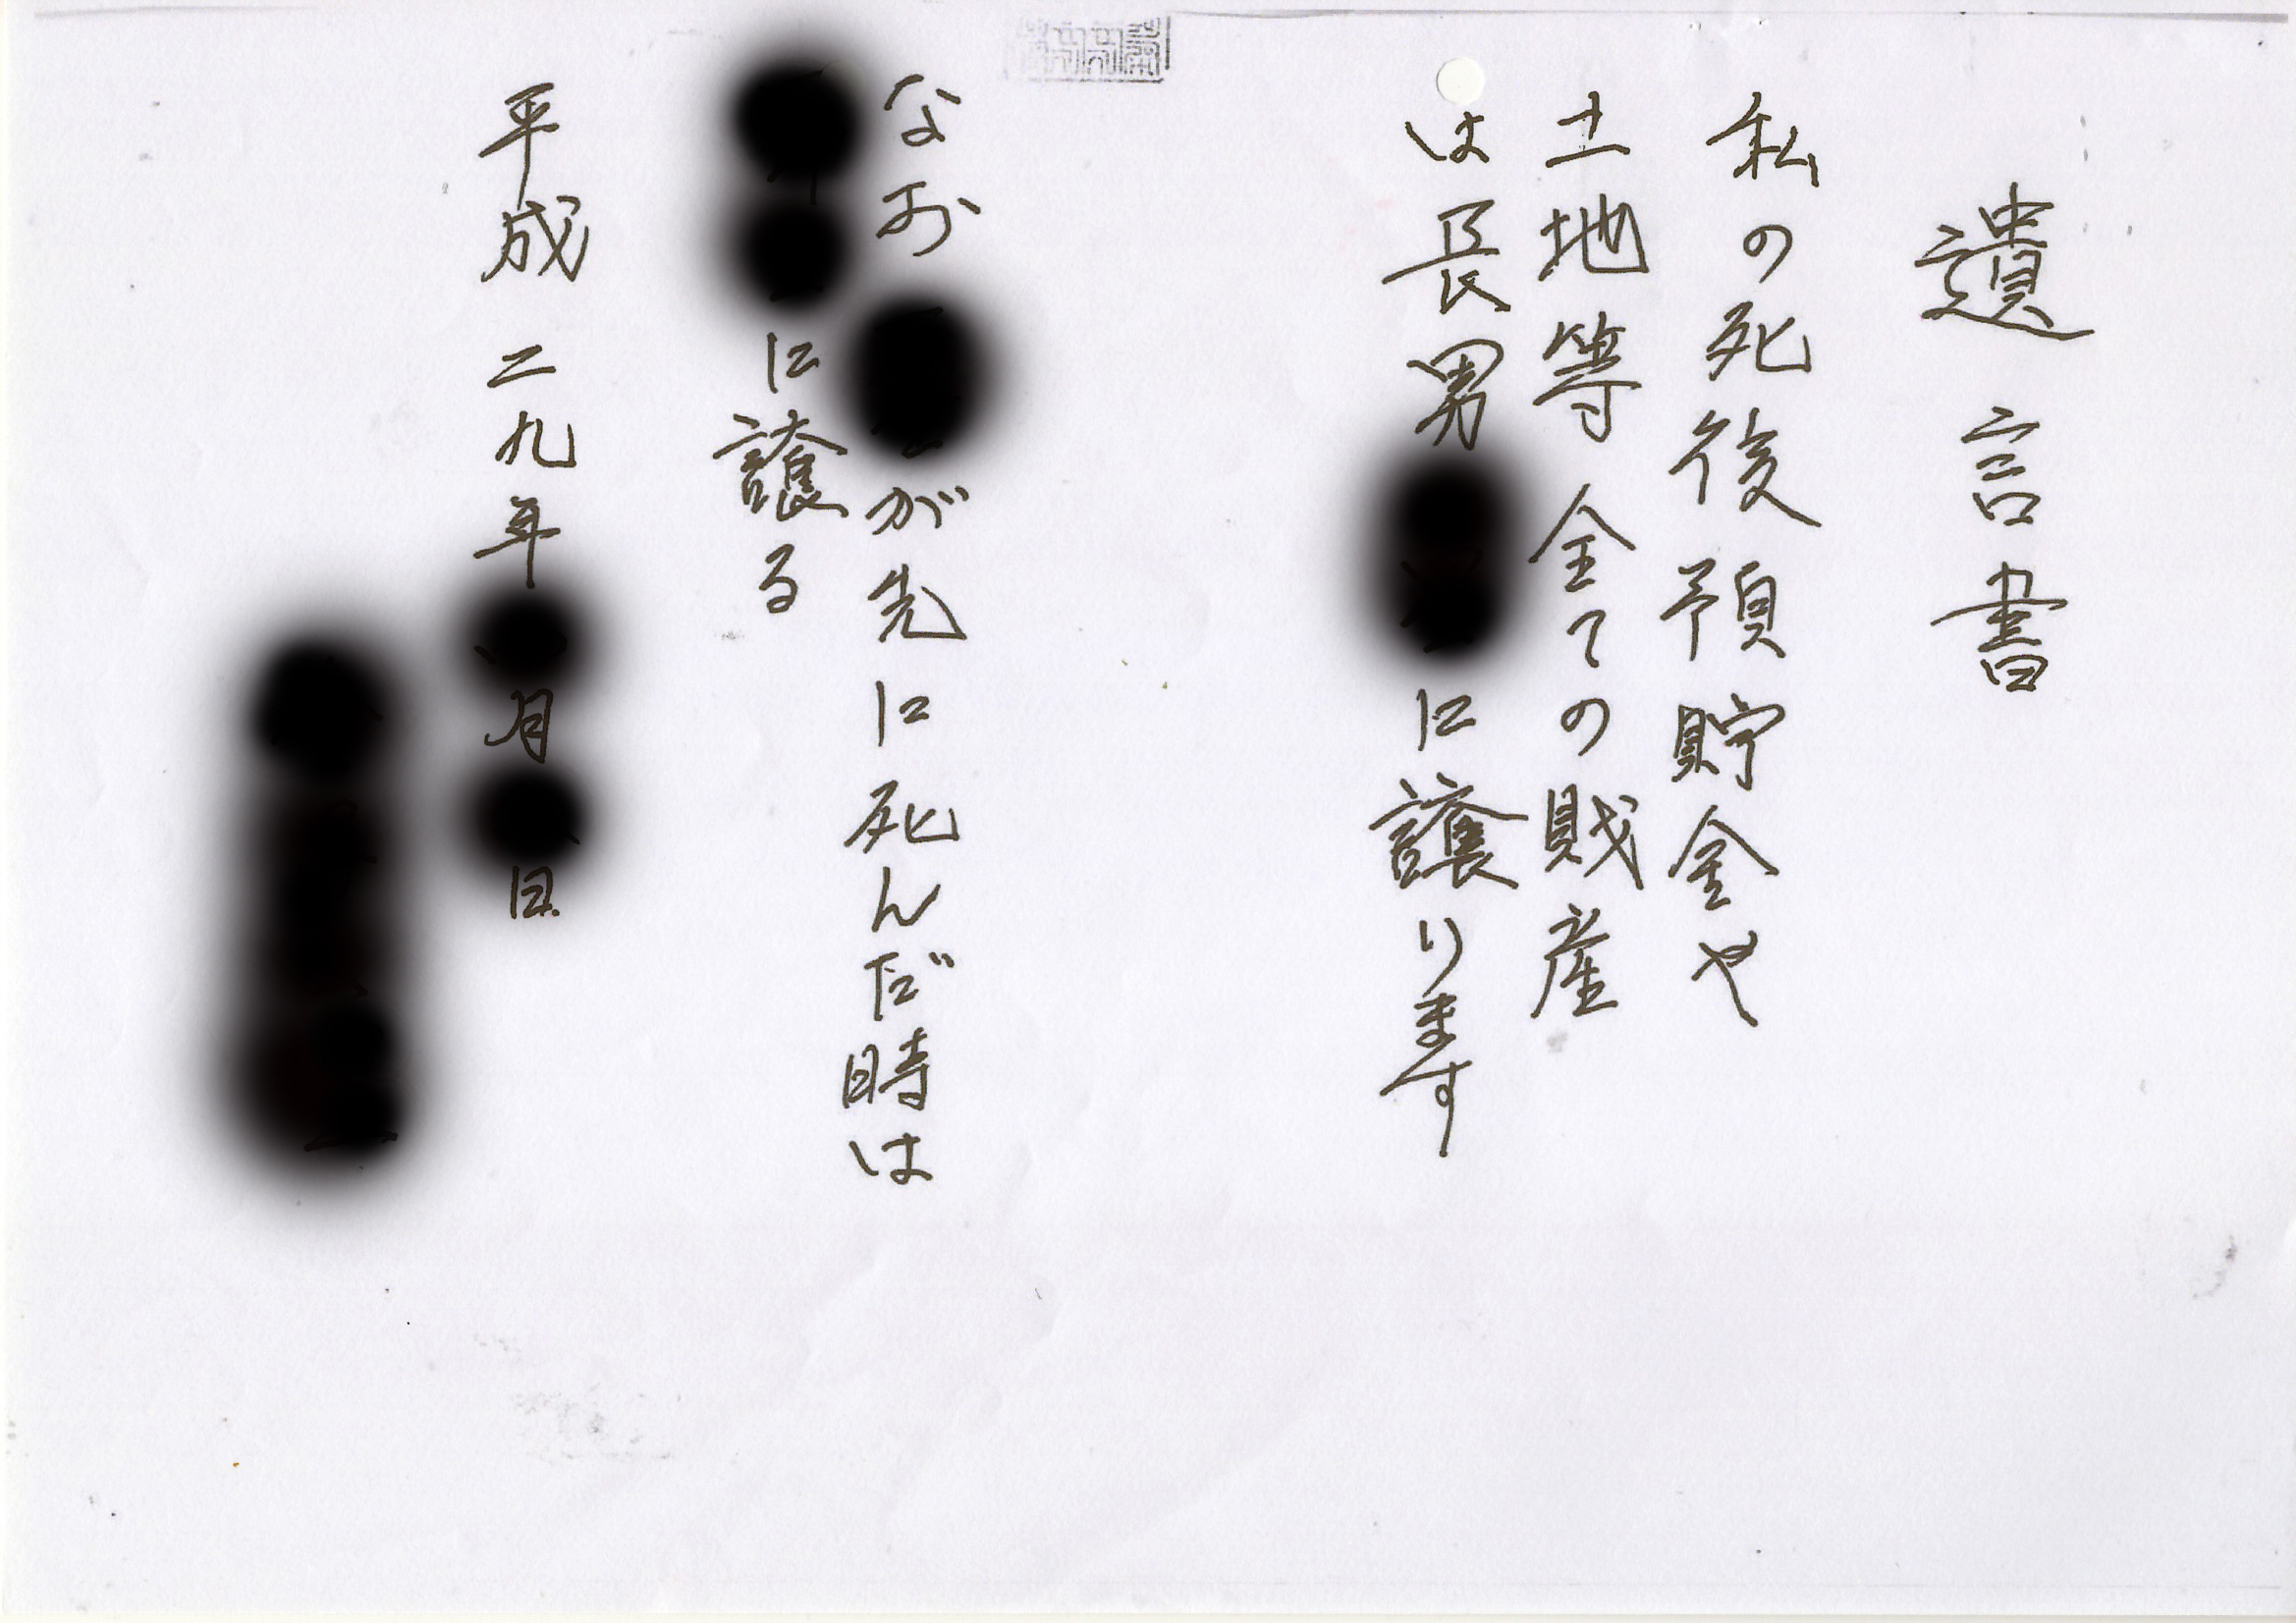 遺言書
私の死後預貯金や
土地等全ての財産
は長男に譲ります
なおが先に死んだ時は
に譲る
平成二九年月日